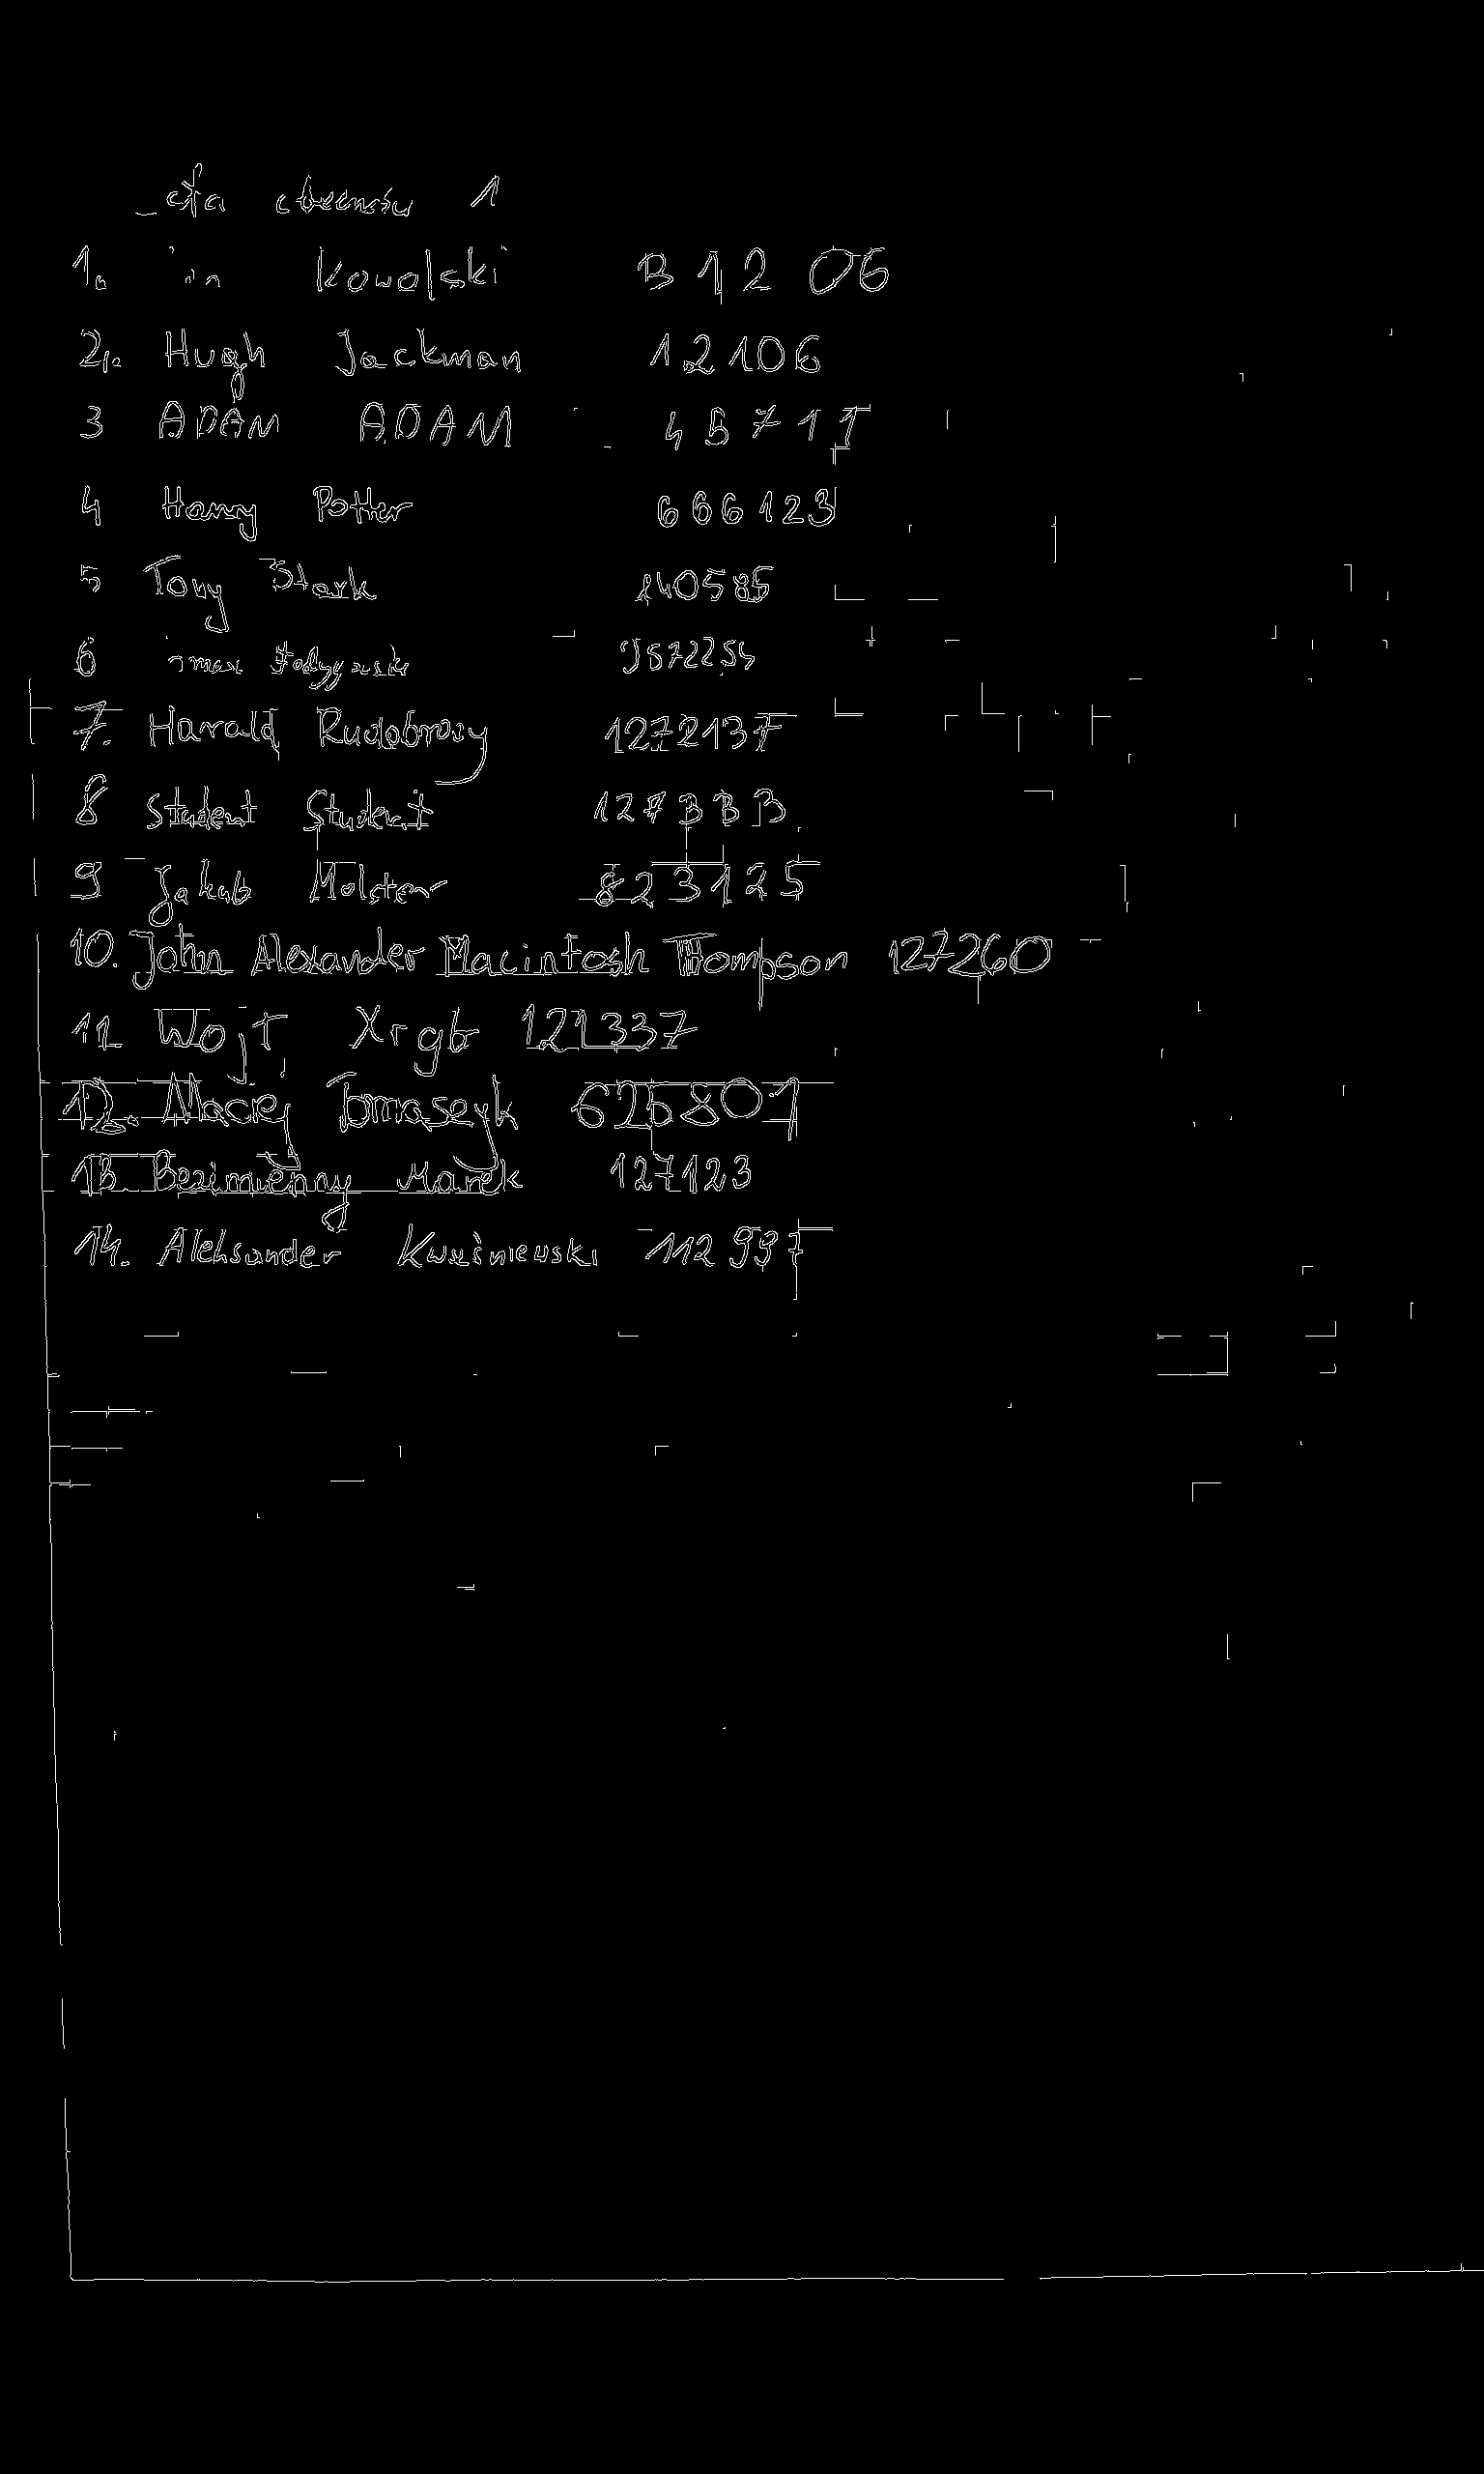 1
1. Kowalski B 1 2 06
2. Hugh Jackman 12106
3 ADAM ADAM 4B711
4 Harry Potter 666123
5 Tony Stark 140585
6
7. Harald Rudobrody 1272137
8 Student Student 127BBB
9 Jakub Molster 823125
10. John Alexander Macintosh Thompson 127260
11 Wojt Xrgb 121337
12. Maciej Tomaszyk 625807
13 Bezimienny Marek 127123
14. Aleksander Kwaśniewski 112997